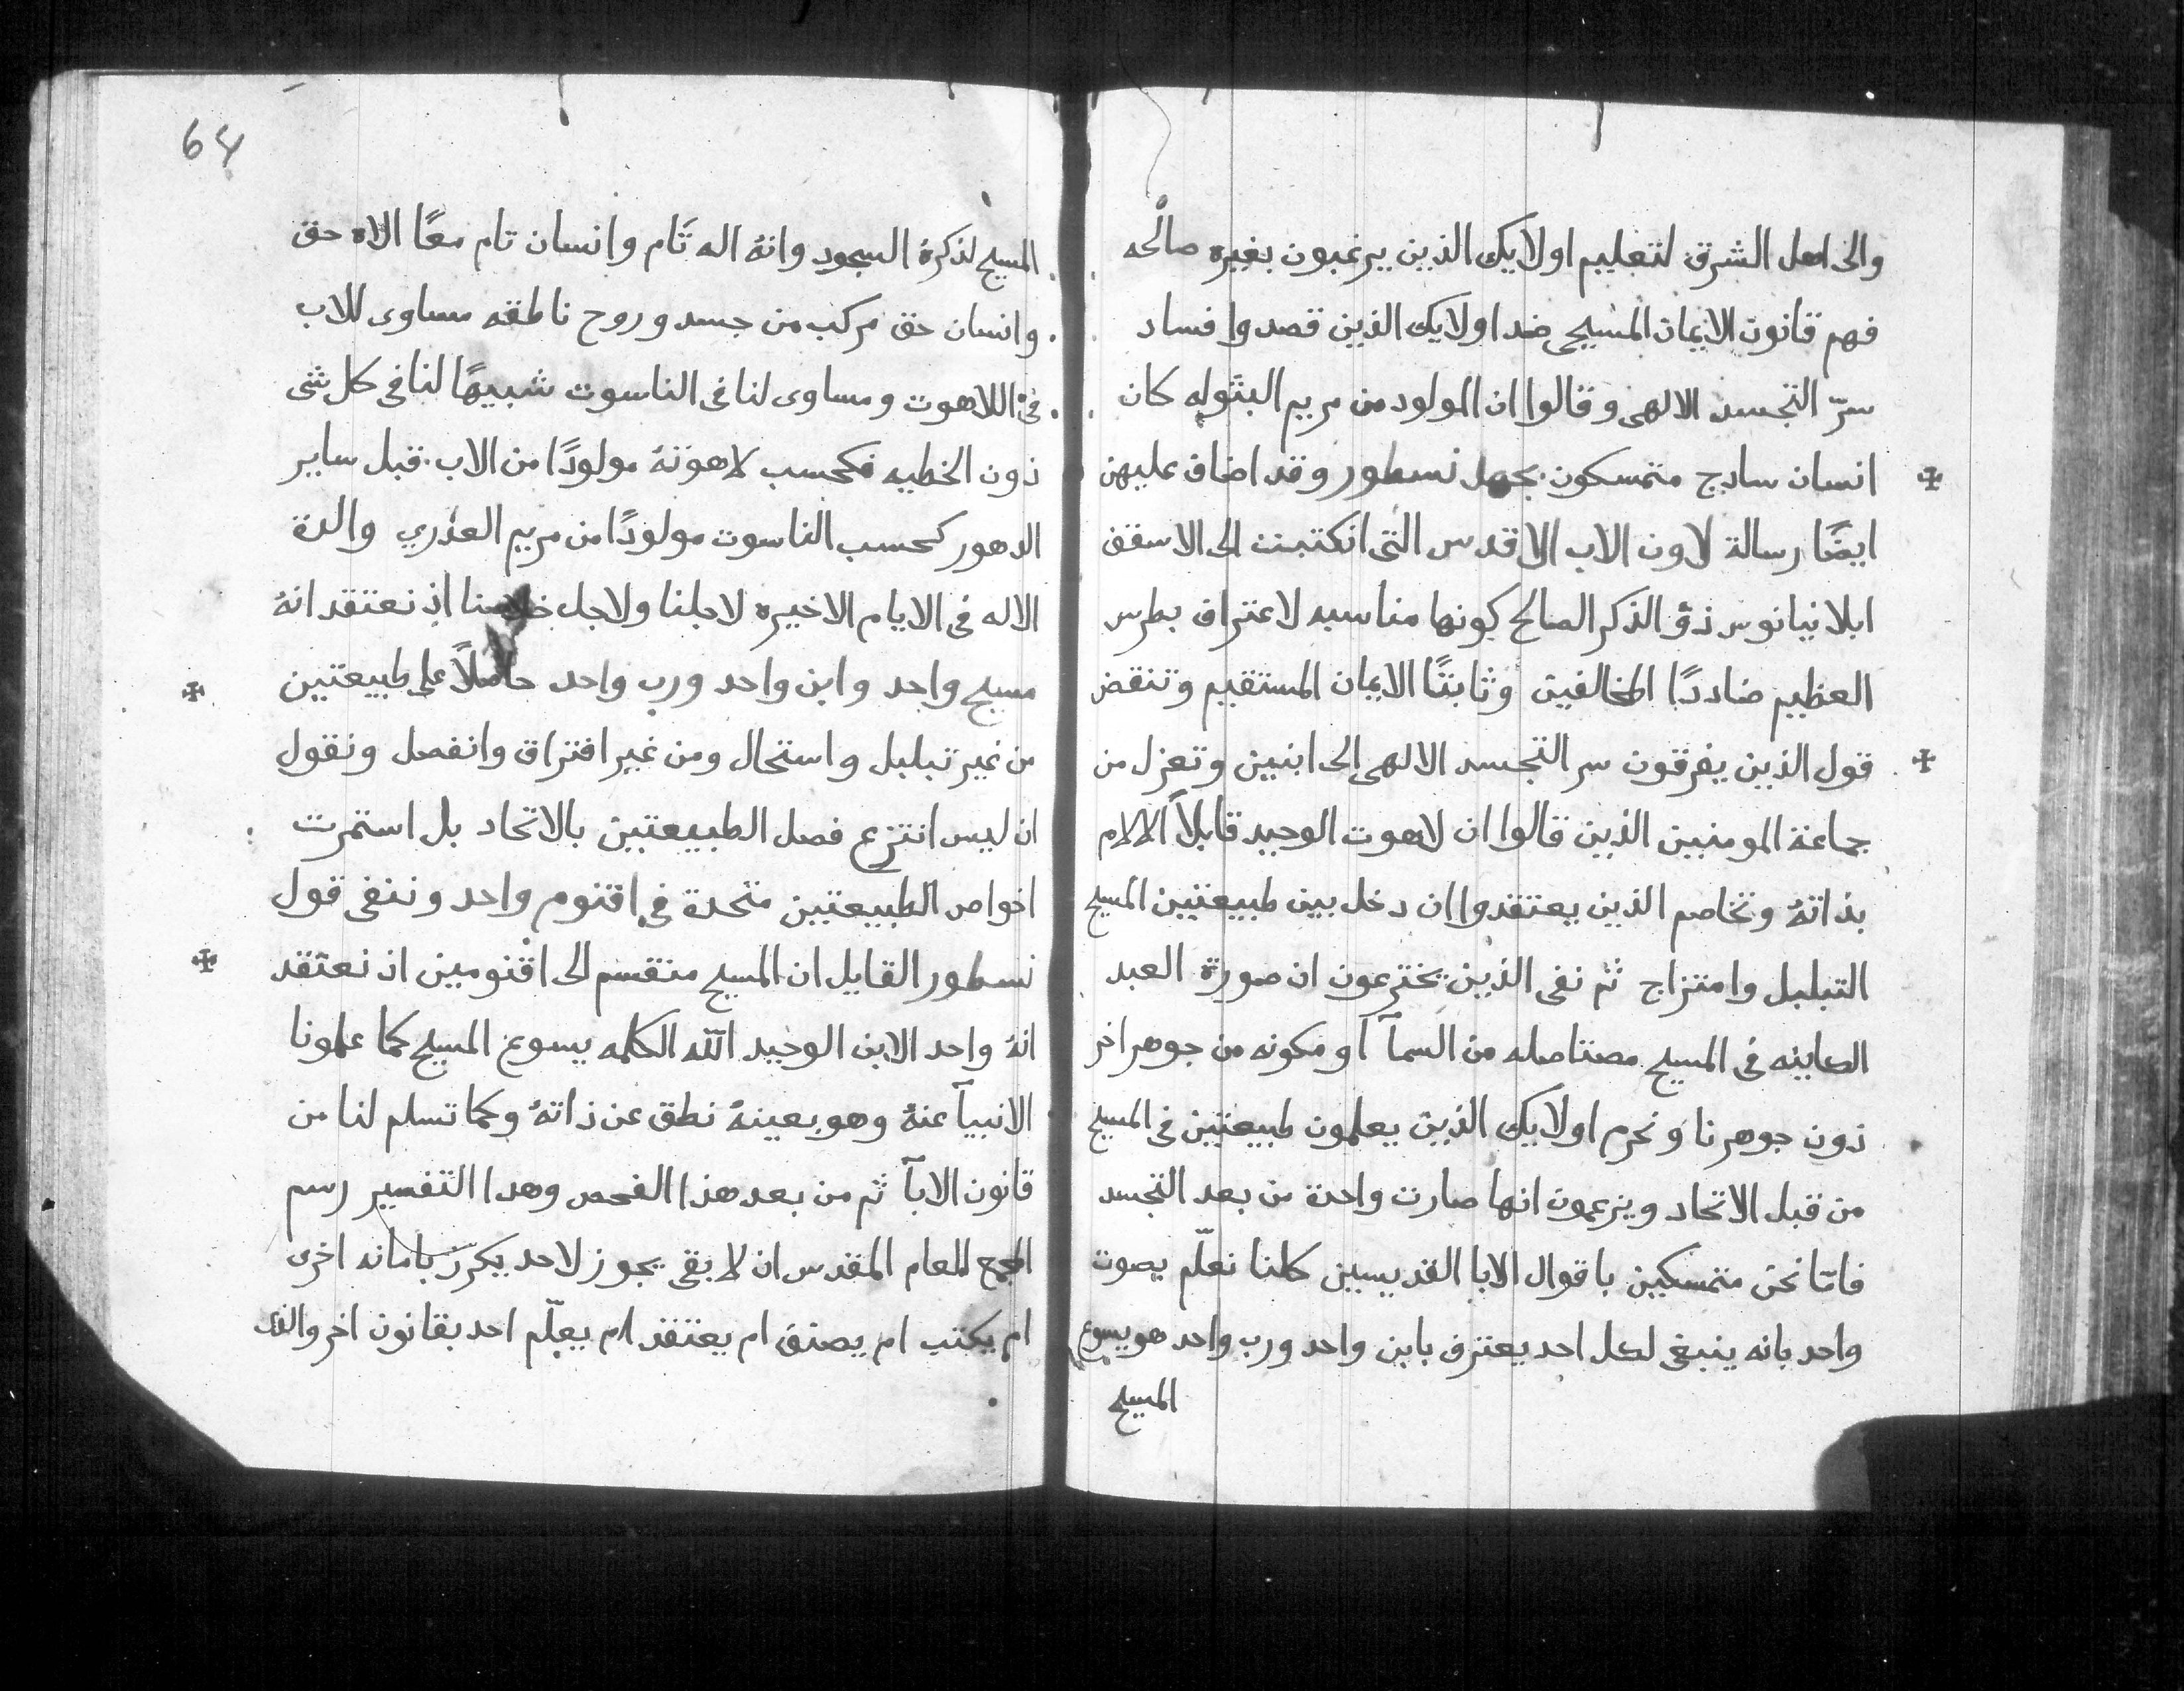 والى اهل الشرق لتعليم اولايك الذين يرغبون بغيره صالحه
فهم قانون الايمان المسيحى ضد اولايك الذين قصدوا فساد
سرّ التجسد الالهى وقالوا ان المولود من مريم البثوله كان
انسان سادج متمسكون بجهل نسطور وقد اضاف عليهن
ايضًا رسالة لاون الاب الاقدس التى انكتبت الى الاسقف
ابلانيانوس ذو الذكر الصالح كونها مناسبه لاعتراف بطرس
العظيم ضاددًا المخالفين وثابتًا الايمان المستقيم وتنقض
قول الذين يفرقون سر التجسد الالهى الى ابنين وتعزل من
جماعة المومنين الذين قالوا ان لاهوت الوحيد قابلاً الالام
بذاتهُ وتخاصم الذين يعتقدوا ان دخل بين طبيعتين المسيح
التبلبل وامتزاج ثم نفى الذين يخترعون ان صورة العبد
الكاينه فى المسيح مصتاصله من السمآ او مكونه من جوهر اخر
ذون جوهرنا ونحرم اولايك الذين يعلمون طبيعتين فى المسيح
من قبل الاتحاد ويزعمون انها صارت واحدة من بعد التجسد
فامّا نحن متمسكين باقوال الابا القديسين كلنا نعلّم بصوت
واحد بانه ينبغى لكل احد يعترف بابن واحد ورب واحد هو يسوع
المسيح
64
المسيح لذكرهُ السجود وانهُ اله تام وانسان تام معًا الاه حق
وانسان حق مركب من جسد وروح ناطقه مساوى للاب
فى اللاهوت ومساوى لنا فى الناسوت شبيهًا لنا فى كل شى
ذون الخطيه فكحسب لاهوتهُ مولودًا من الاب قبل ساير
الدهور كحسب الناسوت مولودًا من مريم العذري والدة
الاله فى الايام الاخيره لاجلنا ولاجل خلاصنا اذ نعتقد انهُ
مسيح واحد وابن واحد ورب واحد حاملاً على طبيعتين
من غير تبلبل واستحال ومن غير افتراق وانفصل ونقول
ان ليس انتزع فصل الطبيعتين بالاتحاد بل استمرت
اخواص الطبيعتين متحدة فى اقنوم واحد وننفى قول
نسطور القايل ان المسيح منقسم الى اقنومين اذ نعتقد
انهُ واحد الابن الوحيد الله الكلمه يسوع المسيح كما علمونا
الانبيآ عنهُ وهو بعينهُ نطق عن ذاتهُ وكما تسلم لنا من
قانون الابآ ثم من بعد هذا الفحص وهدا التفسير رسم
المجمع العام المقدس ان لا بقى يجوز لاحد يكرّز بامانه اخرى
ام يكتب ام يصنف ام يعتقد ام يعلّم احد بقانون اخر والذى